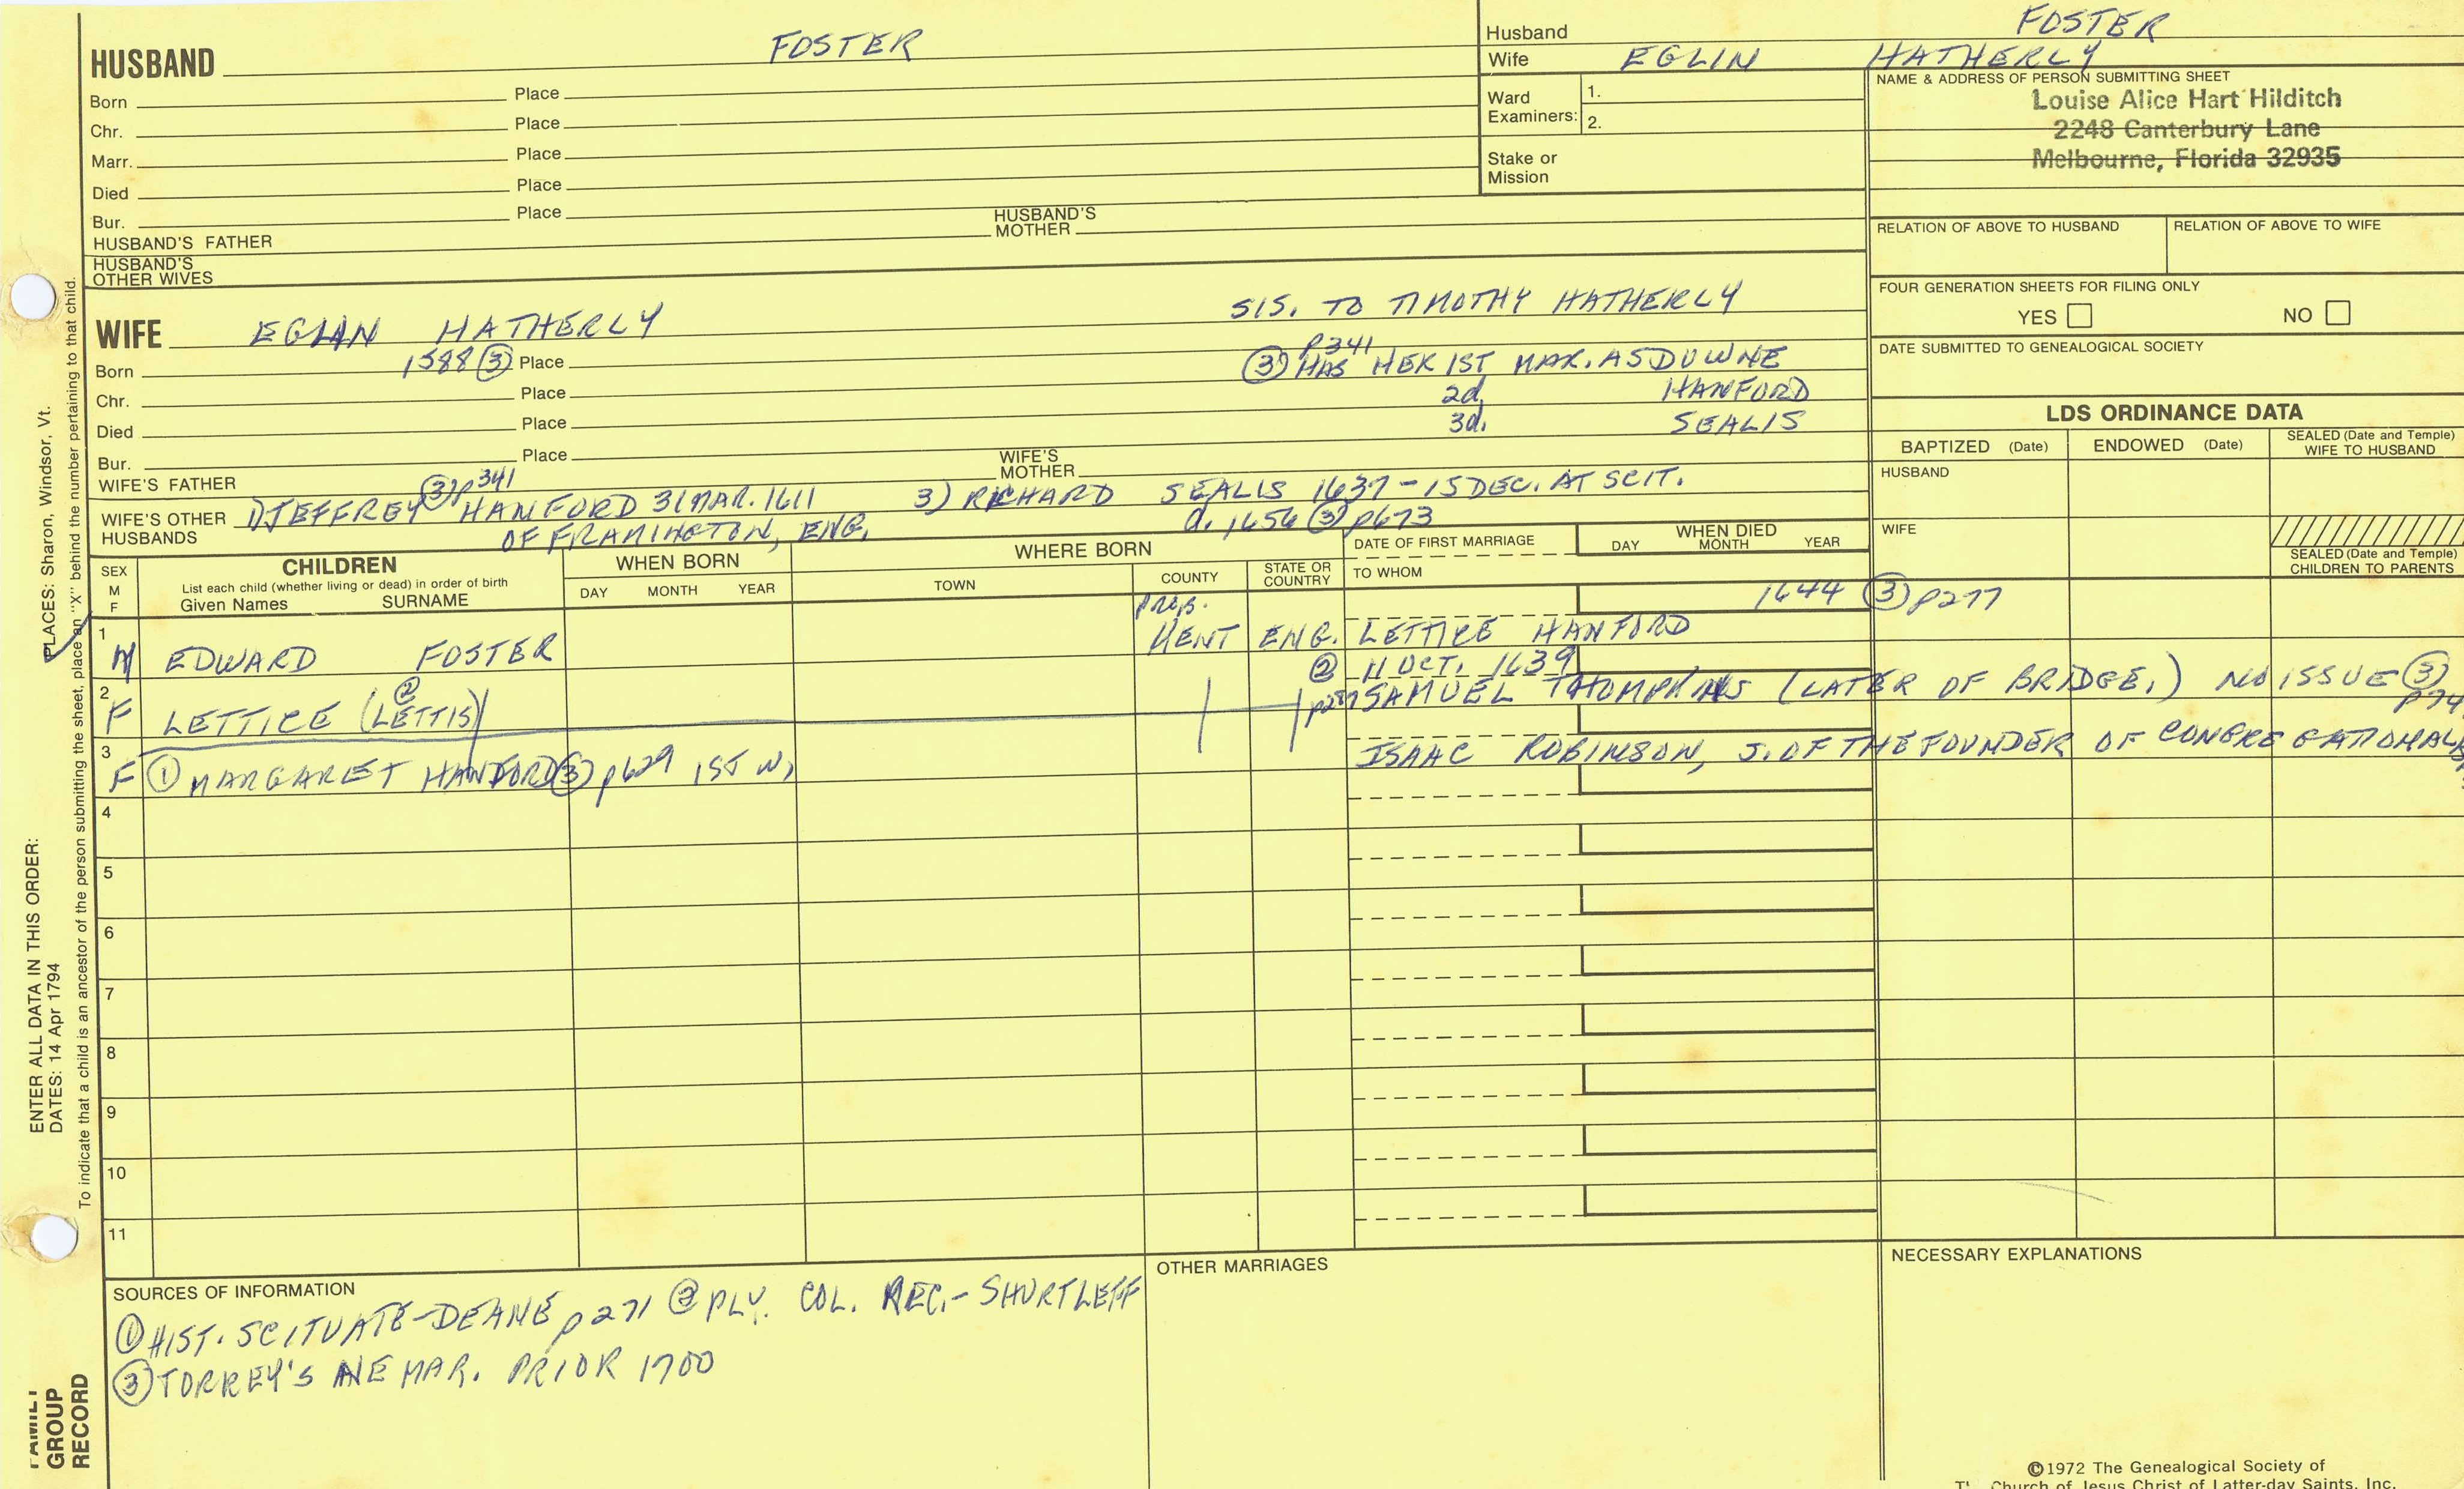 HUSBAND FOSTER
Born Place
Chr. Place
Marr. Place
Died Place
Bur. Place
HUSBAND'S FATHER HUSBAND'S MOTHER
HUSBAND'S OTHER WIVES
Husband FOSTER
Wife EGLIN HATHERLY
Ward Examiners: 1.
2.
Stake or Mission
NAME & ADDRESS OF PERSON SUBMITTING SHEET
Louise Alice Hart Hilditch
2248 Canterbury Lane
Melbourne, Florida 32935
RELATION OF ABOVE TO HUSBAND RELATION OF ABOVE TO WIFE
FOUR GENERATION SHEETS FOR FILING ONLY
YES NO
DATE SUBMITTED TO GENEALOGICAL SOCIETY
WIFE EGLIN HATHERLY SIS. TO TIMOTHY HATHERLY
Born 1588 ③ Place
p341
③ HAS HER 1ST MAR. AS DUWNE
Chr. Place 2d. HANFORD
Died Place 3d. SEALIS
Bur. Place
WIFE'S FATHER WIFE'S MOTHER
③ p341
WIFE'S OTHER HUSBANDS 1) JEFFREY HANFORD 31 MAR. 1611 3) RICHARD SEALIS 1637 - 15 DEC. AT SCIT.
OF FRAMINGTON, ENG. d. 1656 ③ p673
LDS ORDINANCE DATA
BAPTIZED (Date) ENDOWED (Date) SEALED (Date and Temple) WIFE TO HUSBAND
HUSBAND
WIFE
SEALED (Date and Temple) CHILDREN TO PARENTS
SEX M F
CHILDREN
List each child (whether living or dead) in order of birth
Given Names SURNAME
WHEN BORN
DAY MONTH YEAR
WHERE BORN
TOWN COUNTY STATE OR COUNTRY
DATE OF FIRST MARRIAGE
TO WHOM
WHEN DIED
DAY MONTH YEAR
1 M EDWARD FOSTER KENT ENG. LETTICE HANFORD 1644 ③ p277
② 11 OCT. 1639
2 F LETTICE (LETTIS) ② SAMUEL (LATER OF BRIDGE.) NO ISSUE ③
3 F ① MARGARET HANFORD ③ p629 1ST W. ISAAC ROBINSON, S. OF THE FOUNDER OF
4
5
6
7
8
9
10
11
SOURCES OF INFORMATION
① HIST. SCITUATE-DEANE p271 ② PLY. COL. REC. - SHURTLEFF
③ TORREY'S NE MAR. PRIOR 1700
OTHER MARRIAGES
NECESSARY EXPLANATIONS
©1972 The Genealogical Society of
Church of Jesus Christ of Latter-day Saints, Inc.
ENTER ALL DATA IN THIS ORDER:
DATES: 14 Apr 1794 PLACES: Sharon, Windsor, Vt.
To indicate that a child is an ancestor of the person submitting the sheet, place an "X" behind the number pertaining to that child.
FAMILY
GROUP
RECORD